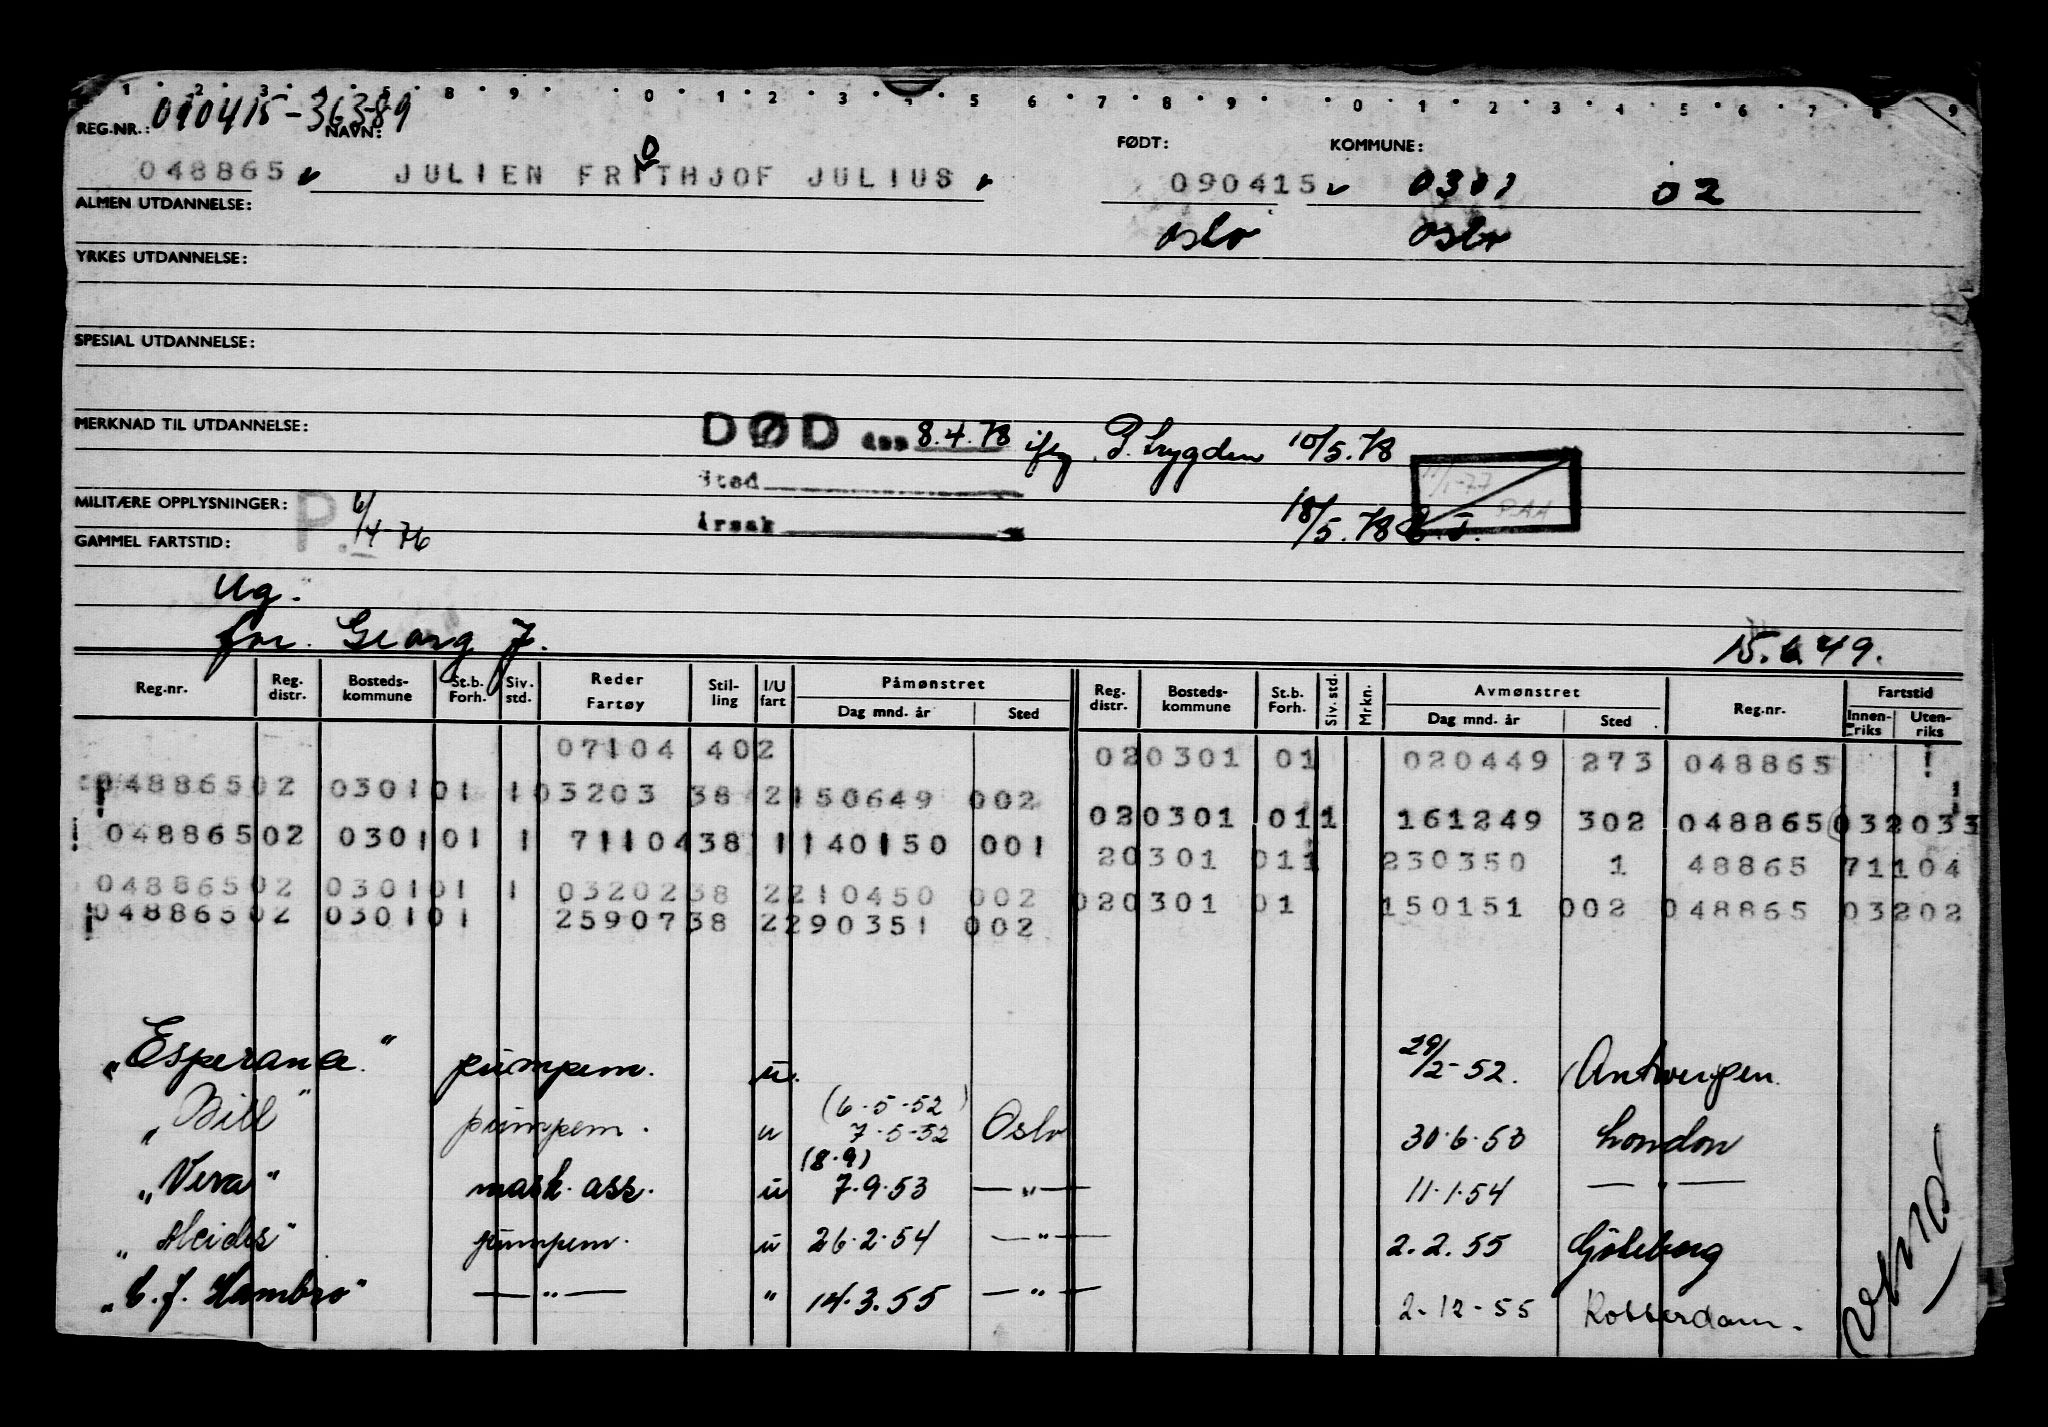 1 2 3 4 5 8 9 0 1 2 3 4 5 6 7 8 9 0 1 2 3 4 5 6 7 8 9
REG.NR.: 090415-36389 NAVN: FØDT: KOMMUNE:
048865 JULIEN FRITHJOF JULIUS 090415 0301 02
ALMEN UTDANNELSE: Oslo Oslo
YRKES UTDANNELSE:
SPESIAL UTDANNELSE:
MERKNAD TIL UTDANNELSE: DØD den 8.4.78 iflg P.trygden 10/5.78
Sted
MILITÆRE OPPLYSNINGER: P. 6/4-76 Årsak 18/5.78
GAMMEL FARTSTID:
Ug.
for. Georg J. 15.6.49.
Reg.nr. Reg. distr. Bosteds-kommune St.b. Forh. Siv. std. Reder Fartøy Stil-ling I/U fart Påmønstret Dag mnd. år Sted Reg. distr. Bosteds-kommune St.b. Forh. Siv. std. Mrkn. Avmønstret Dag mnd. år Sted Reg.nr. Fartstid Innen-riks Uten-riks
07104 402 020301 01 020449 273 048865
04886502 030101 103203 38 2150649 002
020301 011 161249 302 048865 032033
04886502 030101 1 7110438 1140150 001
20301 011 230350 1 48865 71104
04886502 030101 1 0320238 2210450 002
020301 01 150151 002 048865 03202
04886502 030101 2590738 2290351 002
"Esperance" pumpem. u. 29/2-52. Antwerpen.
"Bill" pumpem. u (6.5-52) 7.5-52 Oslo 30.6.53 London
"Vera" mask. ass. u (8.9) 7.9.53 —"— 11.1.54 —"—
pumpem. u 26.2.54 —"— 2.2.55 Göteborg
"C. J. Hambro" —"— " 14.3.55 —"— 2-12-55 Rotterdam.